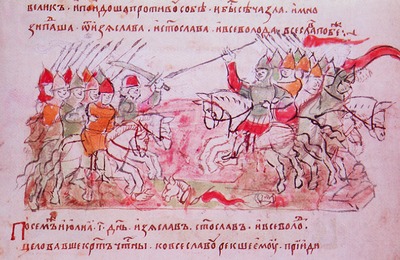 великъ · ипоидошапротивособѣ · ибысѣчазла · имно
зипаша · ѿизѧслава · истослава · ивсеволода · всеславъпобѣ
Посемъиюлиѧ · і · днь · изѧславъ · стославъ · ивсево
целовавшекртъ чтныи · ковсеславо рекшеемоу · прїиди